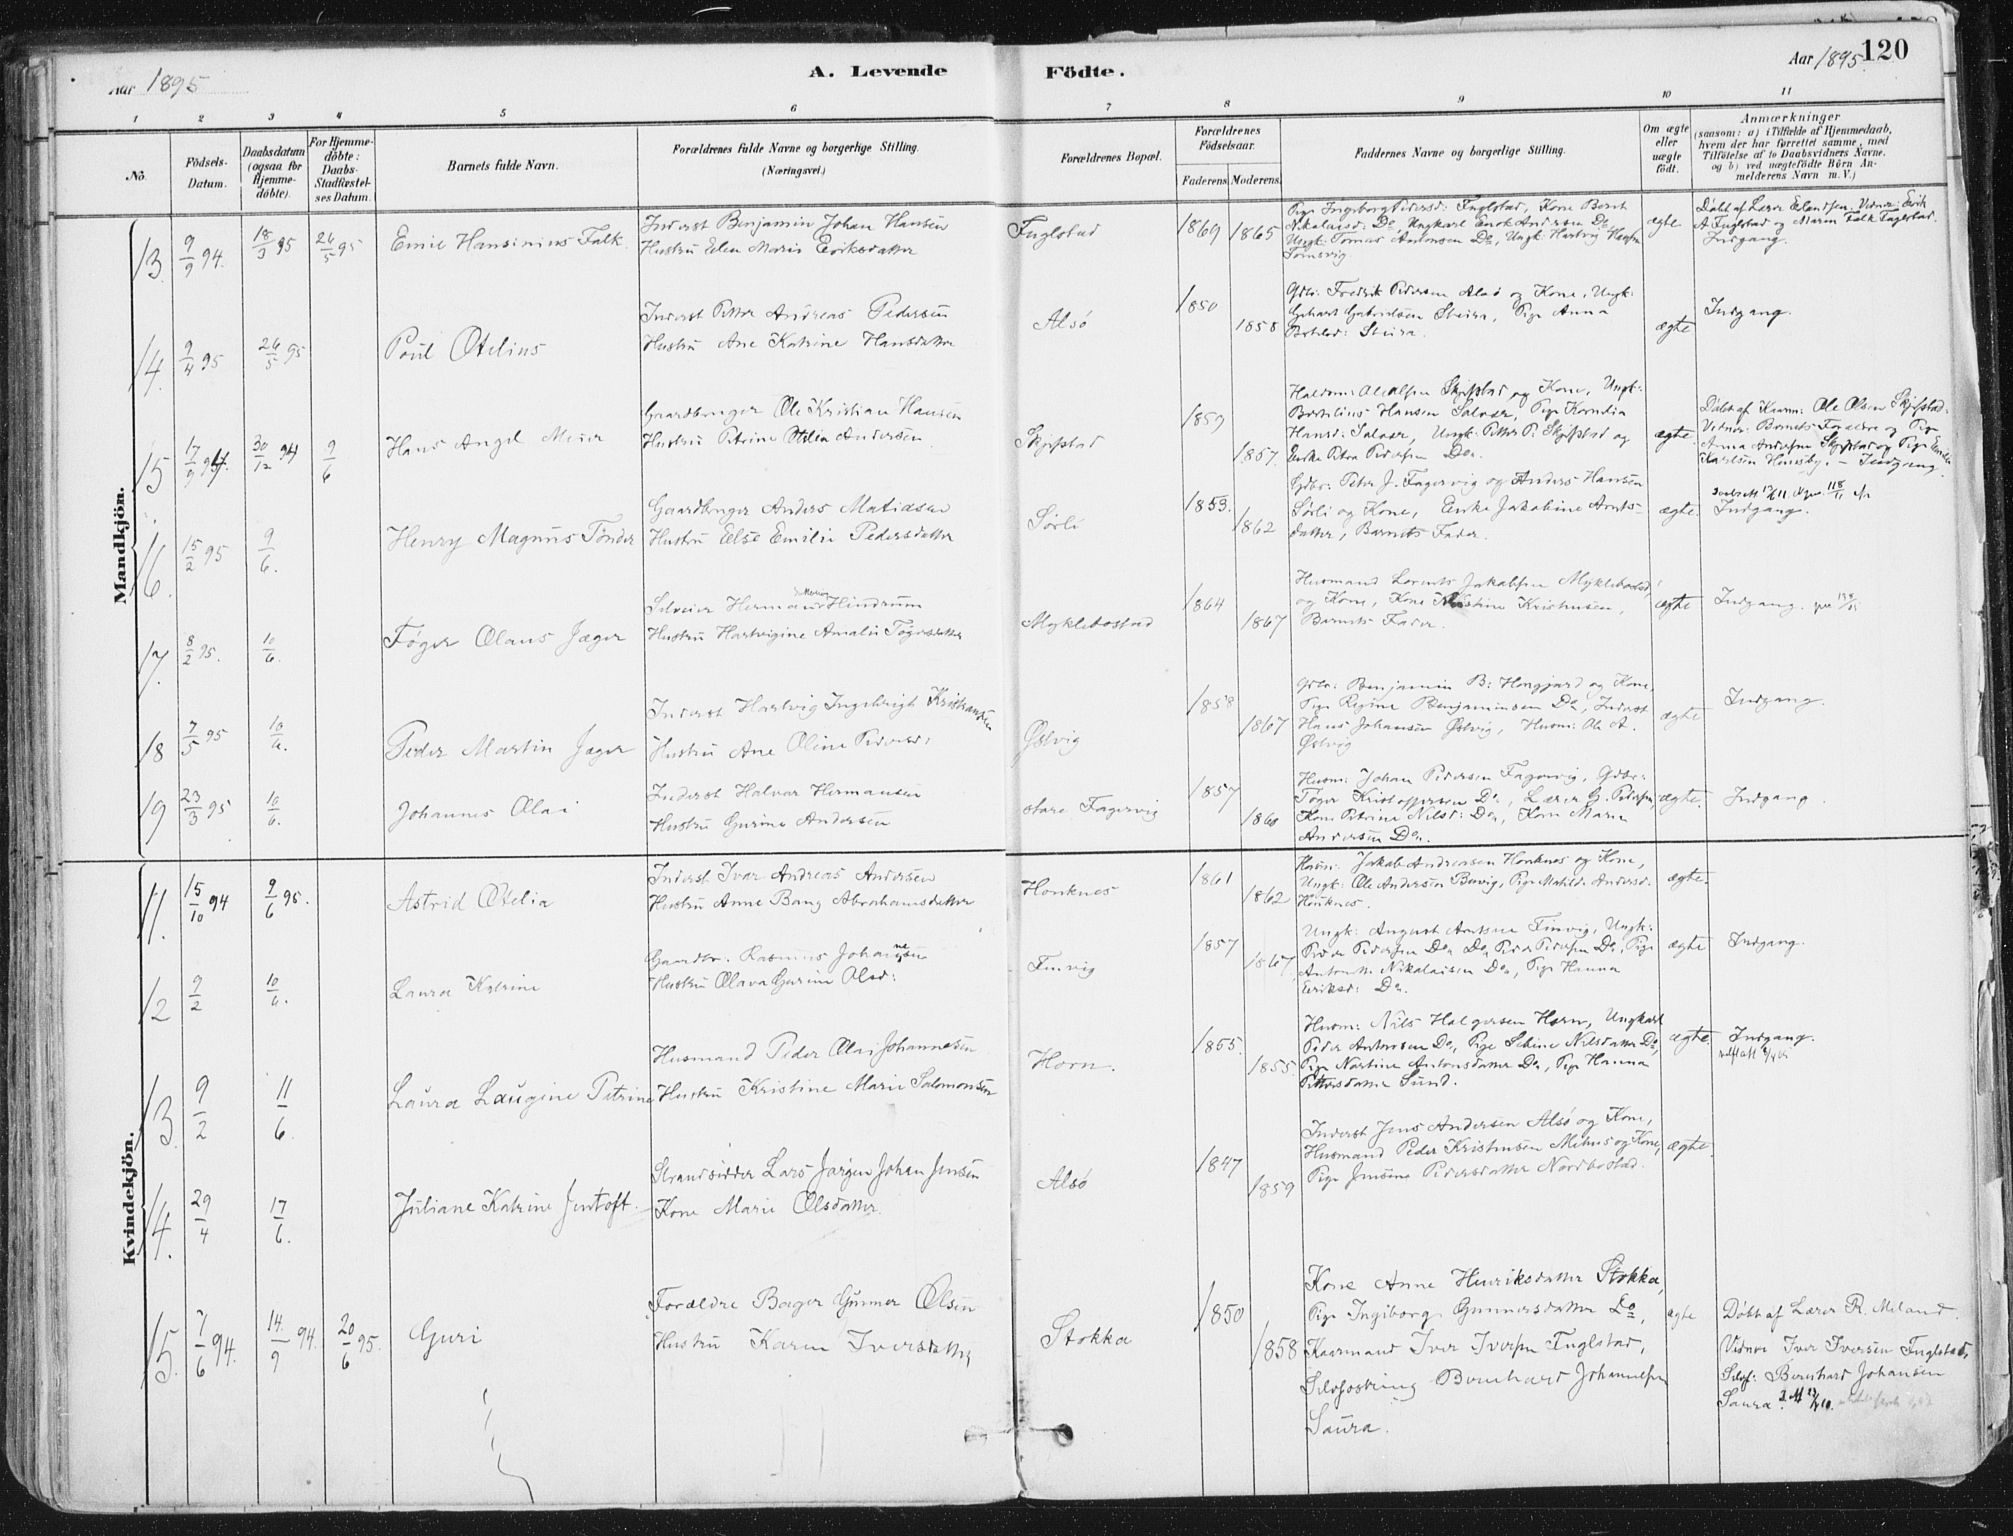 Aar 1895
A. Levende
Födte.
Aar 1895
120
1 2 3 4 5 6 7 8 9 10 11
No.
Födsels-
Datum.
Daabsdatum
(ogsaa for
Hjemme-
döbte).
For Hjemme-
döbte:
Daabs-
Stadfæstel-
ses Datum.
Barnets fulde Navn.
Forældrenes fulde Navne og borgerlige Stilling.
(Næringsvei.)
Forældrenes Bopæl.
Forældrenes
Födselsaar.
Faderens Moderens
Faddernes Navne og borgerlige Stilling.
Om ægte
eller
uægte
födt.
Anmærkninger
(saasom: a) i Tilfælde af Hjemmedaab,
hvem der har forrettet samme, med
Tilföielse af to Daabsvidners Navne.
og b) ved uægtefödte Börn An-
melderens Navn m. V.)
Mandkjön.
13. 9/9 94. 18/3 95 26/5 95 Emil Hansinius Falk.
Inderst Benjamin Johan Hansen
Hustru Elen Marie Eriksdatter
Fuglstad 1869 1865
Pige Ingeborg Pedersd: Fuglstad, Kone Berit
Nikolaisd: Do, Ungkarl Enok Andersen Do
Ungk: Tomas Antonsen Do, Ungk: Hartvig Hansen
Tomsvig
ægte
Døbt af Lærer Erlandsen. Vidner: Erik
A. Fuglstad og Maren Falk Fuglstad.
Indgang.
14. 9/4 95 26/5 95 Poul Otelius
Inderst Petter Andreas Pedersen
Hustru Ane Katrine Hansdatter
Alsø 1850 1858
Gdbr: Fredrik Pedersen Alsø og Kone, Ungk:
Gerhart Gabrielsen Steira, Pige Anna
Steira.
ægte Indgang.
15 17/9 94. 30/12 94 9/6 Hans Angel Meier
Gaardbruger Ole Kristian Hansen
Hustru Petrine Otelia Andersen
Skjefstad 1859 1857.
Skjefstad og Kone, Ungk:
Bertelius Hansen Salvær, Pige Kornelia
Hansd: Salvær, Ungk: Petter P. Skjefstad og
Enke Petra Pedersen Do.
ægte.
Døbt af Ole Olsen Skjefstad.
Vidner: Barnets Forældre og Pige
Anna Andersen Skjefstad og Pige
Karlsen - Indgang.
16. 15/2 95 9/6. Henry Magnus Tønder
Gaardbruger Anders Matiassen
Hustru Else Emilie Pedersdatter
Sørli 1853. 1862
Gdbr: Peter J. Fagervig og Anders Hansen
Sørli og Kone, Enke Jakobine Arnts-
datter, Barnets Fader.
ægte. Indgang.
17. 8/2 95. 10/6. Tøger Olaus Jæger
Selveier Herman Hindrum
Hustru Hartvigine Amalie Tøgersdatter
Myklebostad 1864 1867
Husmand Lorents Jakobsen Myklebostad,
og Kone, Kone Kristine Kristensen,
Barnets Fader.
ægte Indgang.
18 7/5 95 10/6. Peder Martin Jæger
Inderst Hartvig Ingebrigt Kristiansen
Hustru Ane Oline Pedersd:
Østvig 1858 1867
Gdbr: Benjamin B: Hongjord og Kone,
Pige Regine Benjaminsen Do, Inderst
Hans Johansen Østvig, Husm: Ole A.
Østvig
ægte Indgang.
19 23/3 95 10/6. Johannes Olai
Inderst Halvor Hermansen
Hustru Gurine Andersen
store Fagervig 1857 1860
Husm: Johan Pedersen Fagervig, Gdbr:
Tøger Kristoffersen Do, Lærer G. Petersen,
Kone Petrine Nilsd: Do, Kone Maren
Andersen Do.
ægte. Indgang.
Kvindekjön.
11. 15/10 94 9/6 95. Astrid Otelia
Inderst Ivar Andreas Andersen
Hustru Anne Bang Abrahamsdatter
Honknes 1861 1862
Husm: Jakob Andreassen Honknes og Kone,
Ungk: Ole Andersen Pige Matilde Andersd:
Honknes.
ægte.
12 9/2 10/6. Laura Katrine
Gaardbr. Rasmus Johannesen
Hustru Olava Gurine Olsd:
Finvig 1857 1867
Ungk: August Arntsen Finvig, Ungk:
Peder Pedersen Do Do Peder Pedersen Do, Pige
Nikolaisen Do, Pige Hanna
Eriksd: Do.
ægte Indgang.
13. 9/2 11/6 Laura Laugine Petrine
Husmand Peder Olai Johannesen
Hustru Kristine Marie Salomonsen
Horn. 1855. 1855
Husm: Nils Holgersen Horn, Ungkarl
Peder Antonsen Do, Pige Sebine Nilsdatter Do,
Pige Martine Antonsdatter Do, Pige Hanna
Pettersdatter Sund.
ægte. Indgang.
14. 29/4 17/6. Juliane Katrine Jentoft.
Strandsidder Lars Jørgen Johan Jensen
Kone Marie Olsdatter.
Alsø 1847 1859
Inderst Jens Andersen Alsø og Kone,
Husmand Peder Kristensen og Kone,
Pige Jensine Pedersdatter Nordbostad.
ægte.
15. 7/6 94. 14/9 94. 20/6 95. Guri
Forældre Bager Gunner Olsen
Hustru Karen Iversdatter
Stokka 1850 1858
Kone Anne Henriksdatter Stokka,
Pige Ingeborg Gunnersdatter Do,
Kaarmand Iver Iversen Fuglstad,
Bernhard Johannesen
Saura.
ægte
Døbt af Lærer R. Meland.
Vidner Iver Iversen Fuglstad,
Bernhard Johansen
Saura.